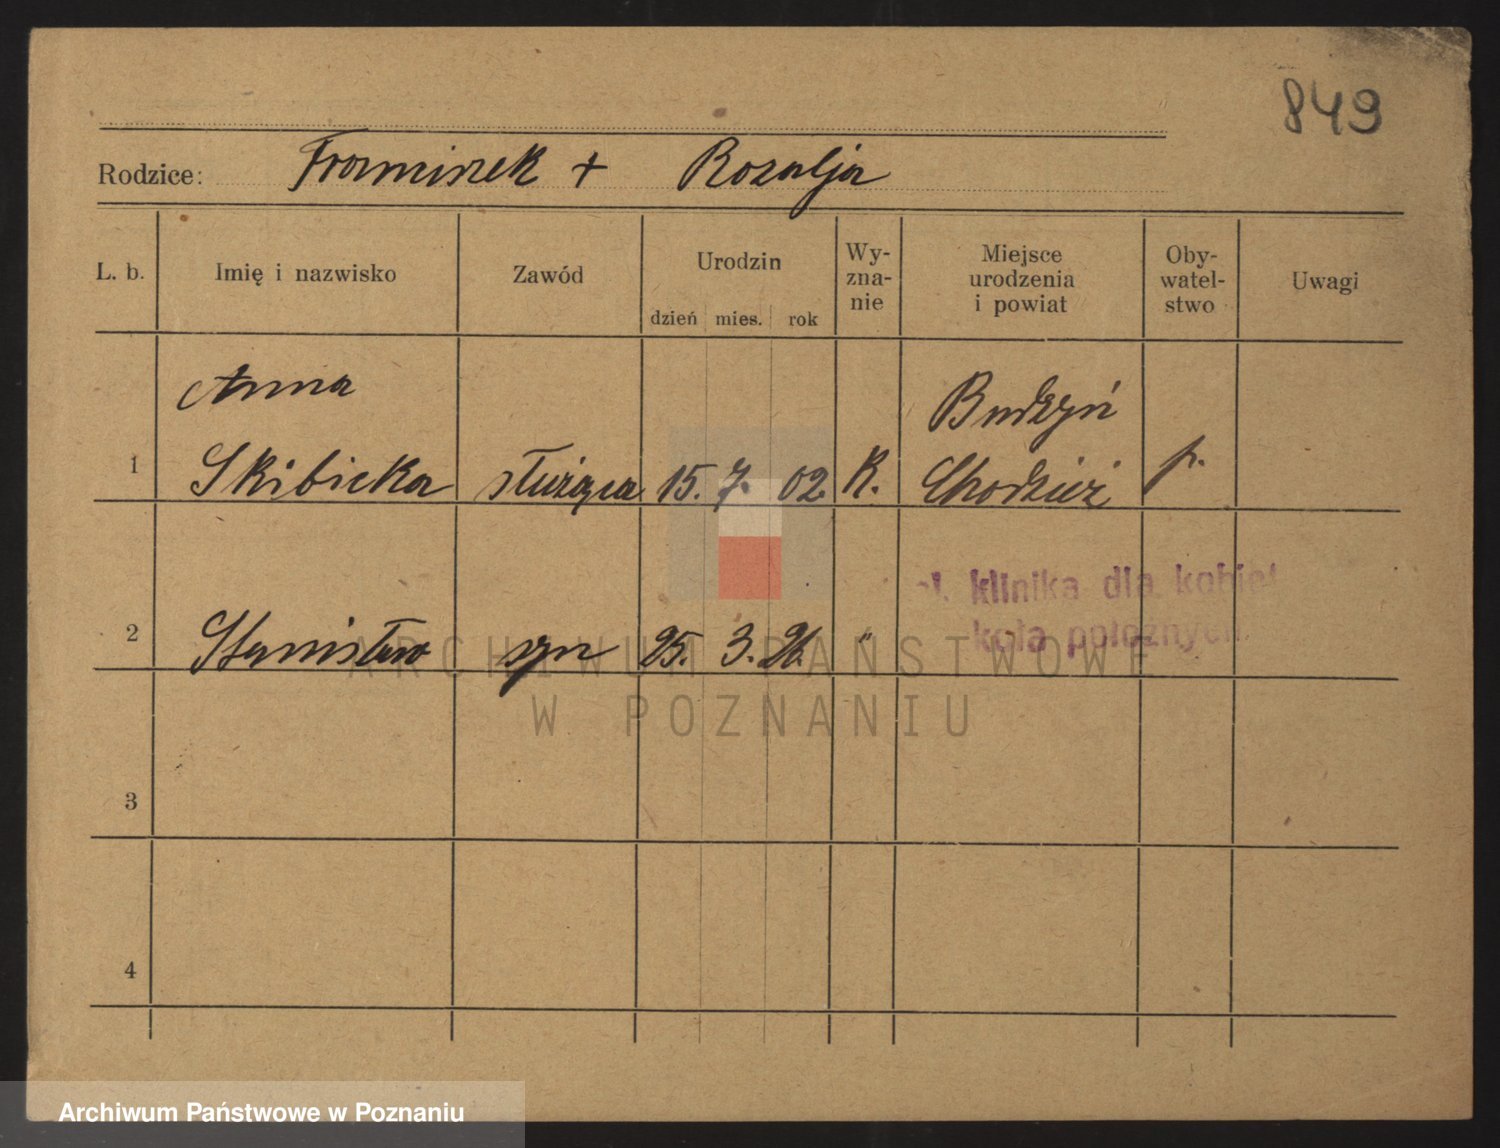 849
Rodzice: Franciszek + Rozalja
L. b. Imię i nazwisko Zawód Urodzin dzień mies. rok Wy-zna-nie Miejsce urodzenia i powiat Oby-watel-stwo Uwagi
Anna Budzyń
1 Skibicka służąca 15. 7. 02. K. Chodzież p.
klinika dla kobiet
2 Stanisław syn 25. 3. 26. " położnych
ARCHIWUM PAŃSTWOWE
W POZNANIU
3
4
Archiwum Państwowe w Poznaniu